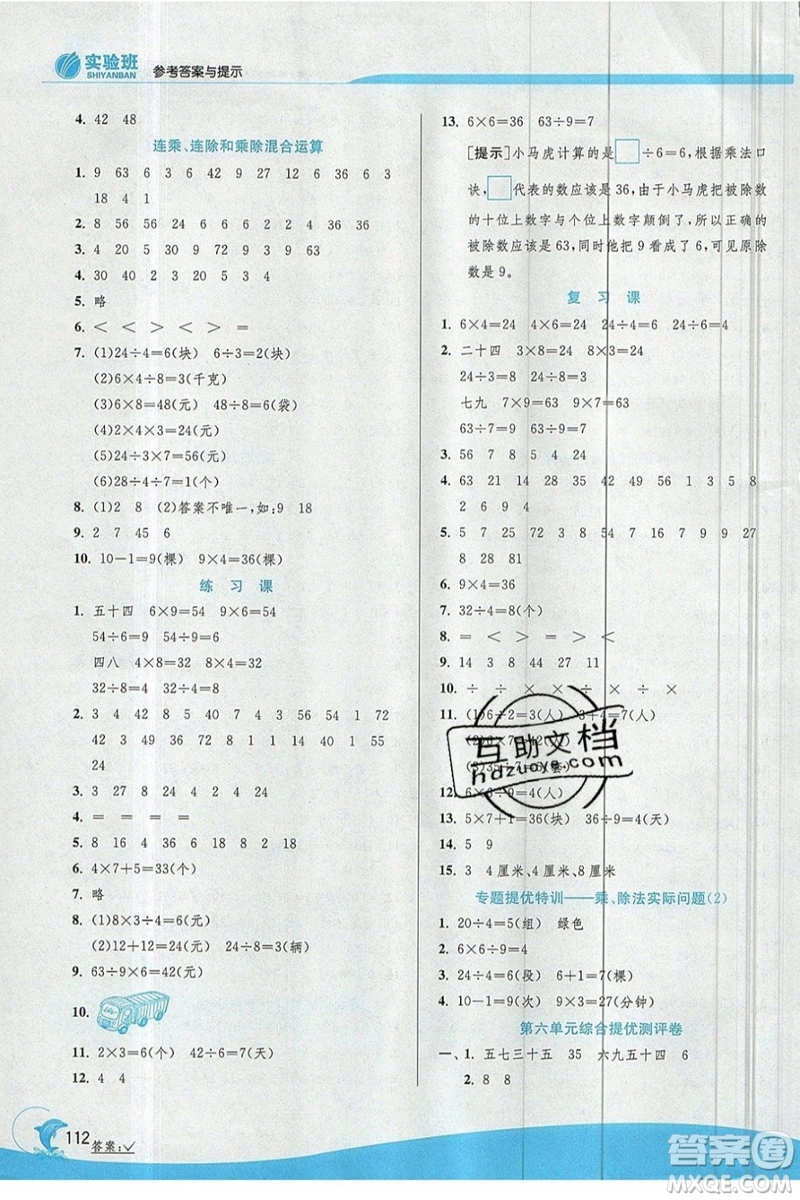 实验班
SHIYANBAN
参考答案与提示
4. 42 48
连乘、连除和乘除混合运算
1. 9 63 6 3 6 42 9 27 12 6 36 6 3
18 4 1
2. 8 56 56 24 2 6 24 24 36
3. 4 20 5 30 9 3 9 9 63
4. 30 40 21 20 5 5 2 3 4
5. 略
6. < < > > > =
7. (1)24÷4=6(块) 6÷3=2(块)
(2)6×4÷8=3(千克)
(3)6×8=48(元) 48÷8=6(袋)
(4)2×4×3=24(元)
(5)24÷3×7=56(元)
(6)28÷4÷1=7(元)
8. (1)2 8 (2)答案不唯一,如:9 18
9. 2 7 45 6
10. 10-1=9(棵) 9×4=36(棵)
练习课
1. 五十四 6×9=54 9×6=54
54÷6=9 54÷9=6
四八 4×8=32 8×4=32
32÷8=4 32÷4=8
2. 3 4 42 8 5 40 7 4 3 54 1 72
42 35 49 9 18 27 16 40 1 24 54
24
3. 3 27 3 48 4 2 4 24
4. = = = =
5. 8 16 4 36 8 18 8 2 18
6. 4×7+5=33(元)
7. 略
8. (1)8×3÷4=6(元)
(2)12+12=24(元) 24÷8=3(辆)
9. 63÷9×2=14(元)
10.
11. 2×3=6(个) 42÷6=7(天)
12. 4 4
112
答案:✓
13. 6×6=36 63÷9=7
[提示]小马虎计算的是□÷6=6,根据乘法口
诀,□代表的数应该是36,由于小马虎把被除数
的十位上数字与个位上数字颠倒了,所以正确的
被除数应该是63,同时他把9看成了6,可见原除
数是9。
复习课
1. 6×4=24 4×6=24 24÷4=6 24÷6=4
2. 二十四 3×8=24 8×3=24
24÷3=8 24÷8=3
七九 7×9=63 9×7=63
63÷7=9 63÷9=7
3. 56 7 8 5 4 24
4. 63 21 54 28 35 45 56 1 3 5 8
2 6 9 4
5. 5 7 27 8 35 72 3 8 7 9 9 27
8 28 81
6. 9×4=36(个)
7. 32÷4=8(个)
8. = < > = > <
9. 14 3 8 44 27 11
10. ÷ ÷ × ÷ × ×
11. (1)6÷2=3(人) 3+4=7(人)
12. 6×6÷9=4(人)
13. 5×7+1=36(块) 36÷9=4(天)
14. 5 9
15. 3 4厘米,4厘米,3厘米
专题提优特训——乘、除法实际问题(2)
1. 20÷4=5(组) 绿色
2. 6×6÷9=4
3. 24÷4=6(段) 6+1=7(棵)
4. 10-1=9(段) 9×3=27(分钟)
第六单元综合提优测评卷
一、1. 五七三十五 35 六九五十四 6
2. 8 8
互助文档
hdzuoye.com
答案圈
MXQE.COM